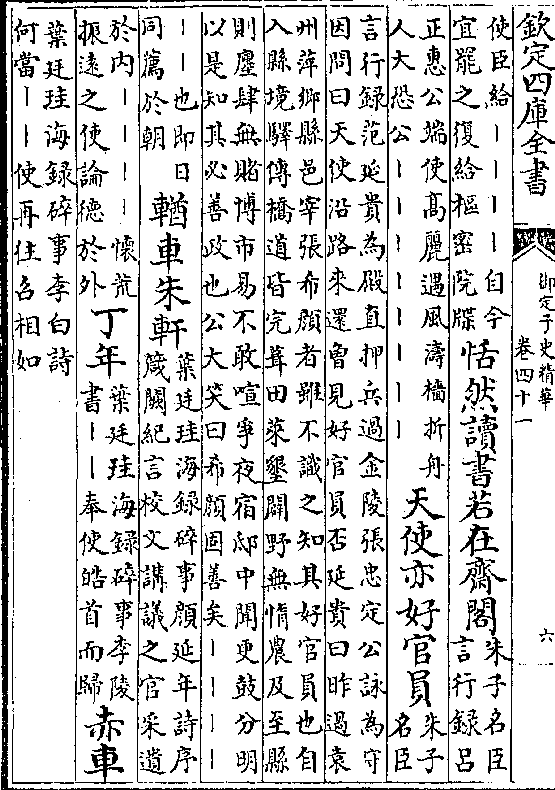 欽定四庫全書
御定子史精華
卷四十一
六
使臣給丨丨丨丨自今
宜罷之復給樞密院牒
恬然讀書若在齋閣
朱子名臣
言行録吕
正惠公端使髙麗遇風濤檣折舟
人大恐公丨丨丨丨丨丨丨丨
天使亦好官員
朱子
名臣
言行録范延貴為殿直押兵過金陵張忠定公詠為守
因問曰天使沿路來還曾見好官員否延貴曰昨過袁
州萍鄉縣邑宰張希顔者雖不識之知其好官員也自
入縣境驛傳橋道皆完葺田萊墾闢野無惰農及至縣
則廛肆無賭博市易不敢喧爭夜宿邸中聞更鼓分明
以是知其必善政也公大笑曰希顔固善矣丨丨丨丨
丨丨也即日
同薦於朝
輶車朱軒
葉廷珪海録碎事顔延年詩序
箴闕紀言校文講議之官采遺
於内丨丨丨丨懷荒
振遠之使論德於外
丁年
葉廷珪海録碎事李陵
書丨丨奉使皓首而歸
赤車
葉廷珪海録碎事李白詩
何當丨丨使再往召相如